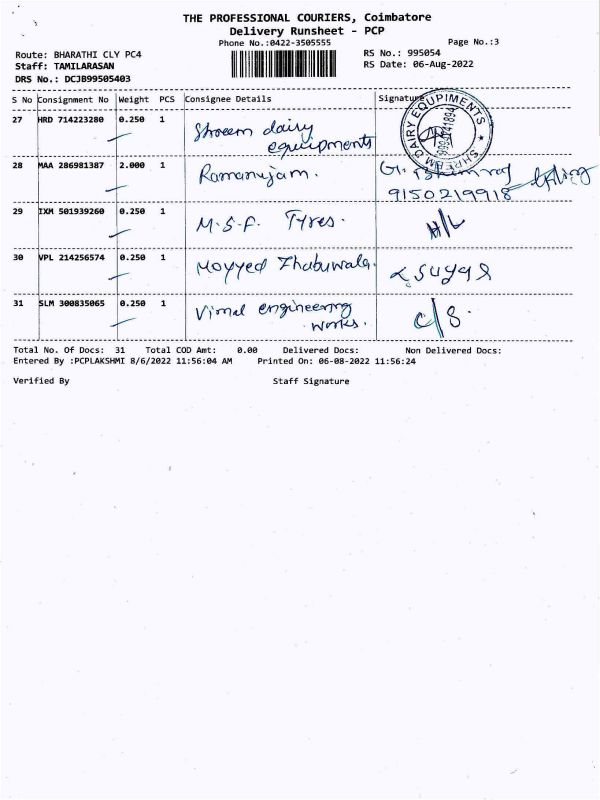 THE PROFESSIONAL COURIERS, Coimbatore
Delivery Runsheet - PCP
Phone No.:0422-3505555
Page No.:3
Route: BHARATHI CLY PC4
RS No.: 995054
Staff: TAMILARASAN
RS Date: 06-Aug-2022
DRS No.: DCJB99505403
S No Consignment No Weight PCS Consignee Details Signature
27 HRD 714223280 0.250 1 Shreem dairy
equipments
SHREEM DAIRY EQUIPMENTS
28 MAA 286981387 2.000 1 Ramanujam.
9150219918
29 IXM 501939260 0.250 1 M.S.F. Tyres. H/L
30 VPL 214256574 0.250 1 Moyyed Zhabuwala.
31 SLM 300835065 0.250 1 Vimal engineering
works. C/S.
Total No. Of Docs: 31 Total COD Amt: 0.00 Delivered Docs: Non Delivered Docs:
Entered By :PCPLAKSHMI 8/6/2022 11:56:04 AM Printed On: 06-08-2022 11:56:24
Verified By Staff Signature